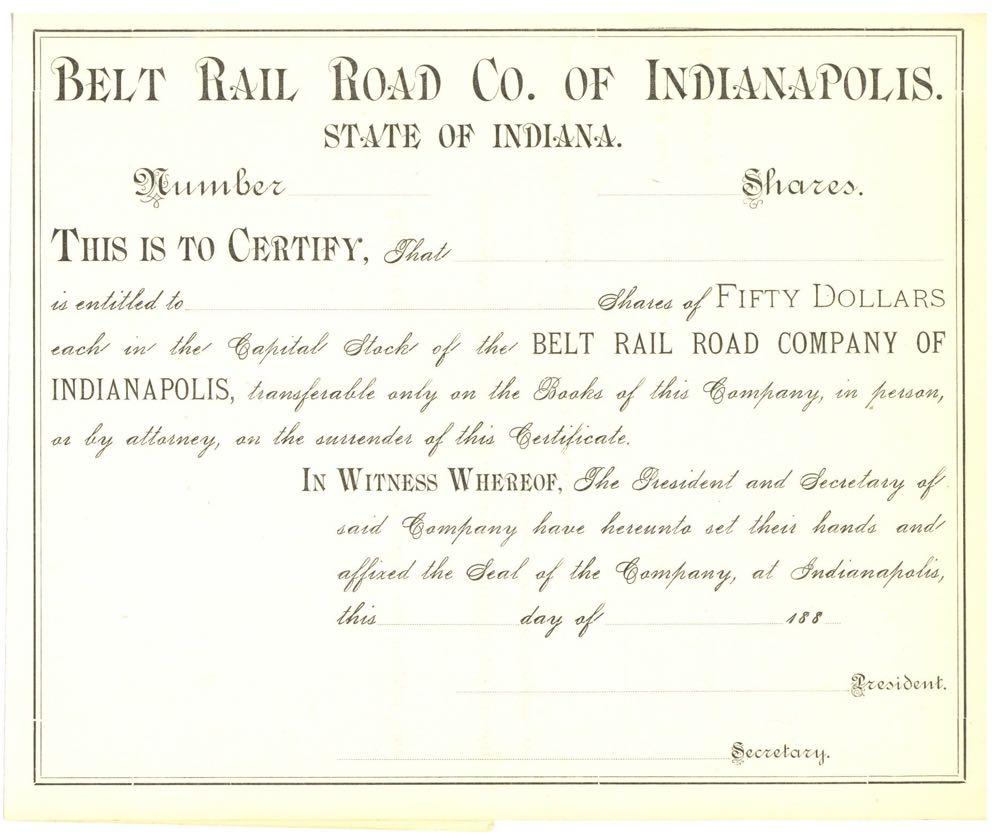 BELT RAIL ROAD CO. OF INDIANAPOLIS.
STATE OF INDIANA.
Number Shares.
THIS IS TO CERTIFY, That
is entitled to Shares of FIFTY DOLLARS
each in the Capital Stock of the BELT RAIL ROAD COMPANY OF
INDIANAPOLIS, transferable only on the Books of this Company, in person,
or by attorney, on the surrender of this Certificate.
IN WITNESS WHEREOF, The President and Secretary of
said Company have hereunto set their hands and
affixed the Seal of the Company, at Indianapolis,
this day of 188
President.
Secretary.